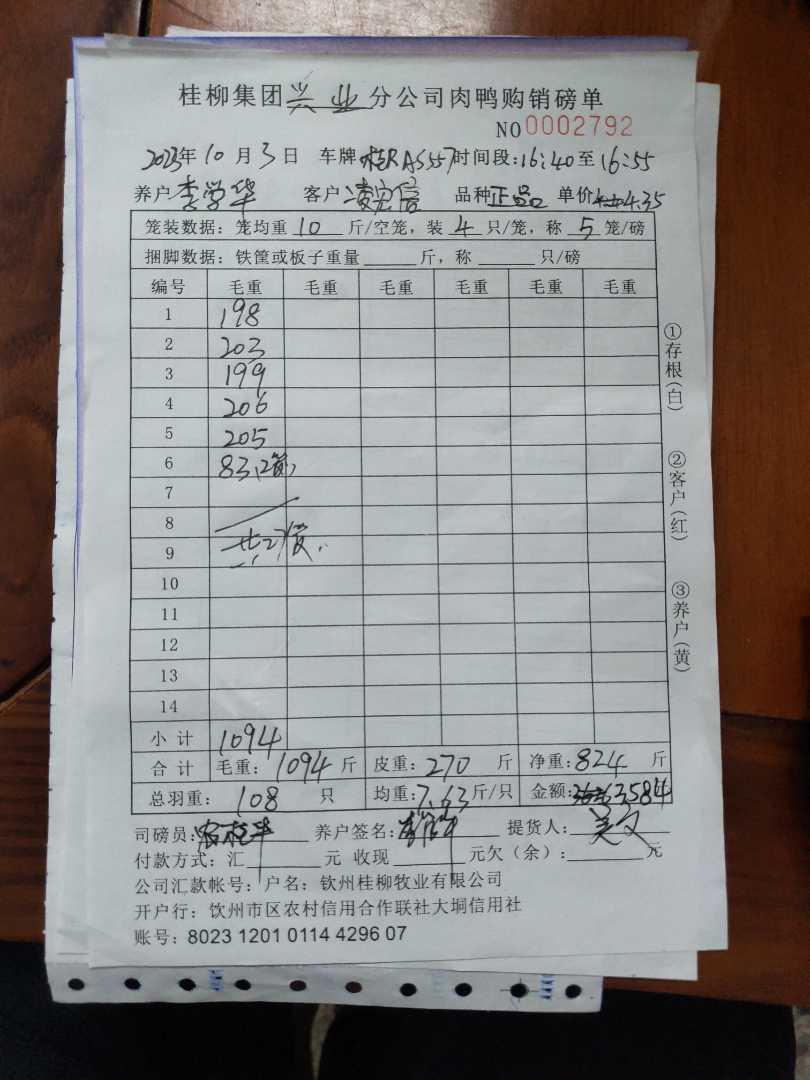 桂柳集团兴业分公司肉鸭购销磅单
NO 0002792
2023年10月3日 车牌 桂R AS557 时间段:16:40至16:55
养户 李学华 客户 凌宏信 品种 正品 单价 4.35
笼装数据: 笼均重 10 斤/空笼, 装 4 只/笼, 称 5 笼/磅
捆脚数据: 铁筐或板子重量 斤, 称 只/磅
编号 毛重 毛重 毛重 毛重 毛重 毛重
1 198
2 203
3 199
4 206
5 205
6 83
7
8
9 共27
10
11
12
13
14
小计 1094
合计 毛重: 1094 斤 皮重: 270 斤 净重: 824 斤
总羽重: 108 只 均重: 7.63 斤/只 金额: 3584
司磅员: 养户签名: 提货人:
付款方式: 汇 元 收现 元欠(余): 元
公司汇款帐号: 户名: 钦州桂柳牧业有限公司
开户行: 饮州市区农村信用合作联社大垌信用社
账号: 8023 1201 0114 4296 07
①存根(白)
②客户(红)
③养户(黄)